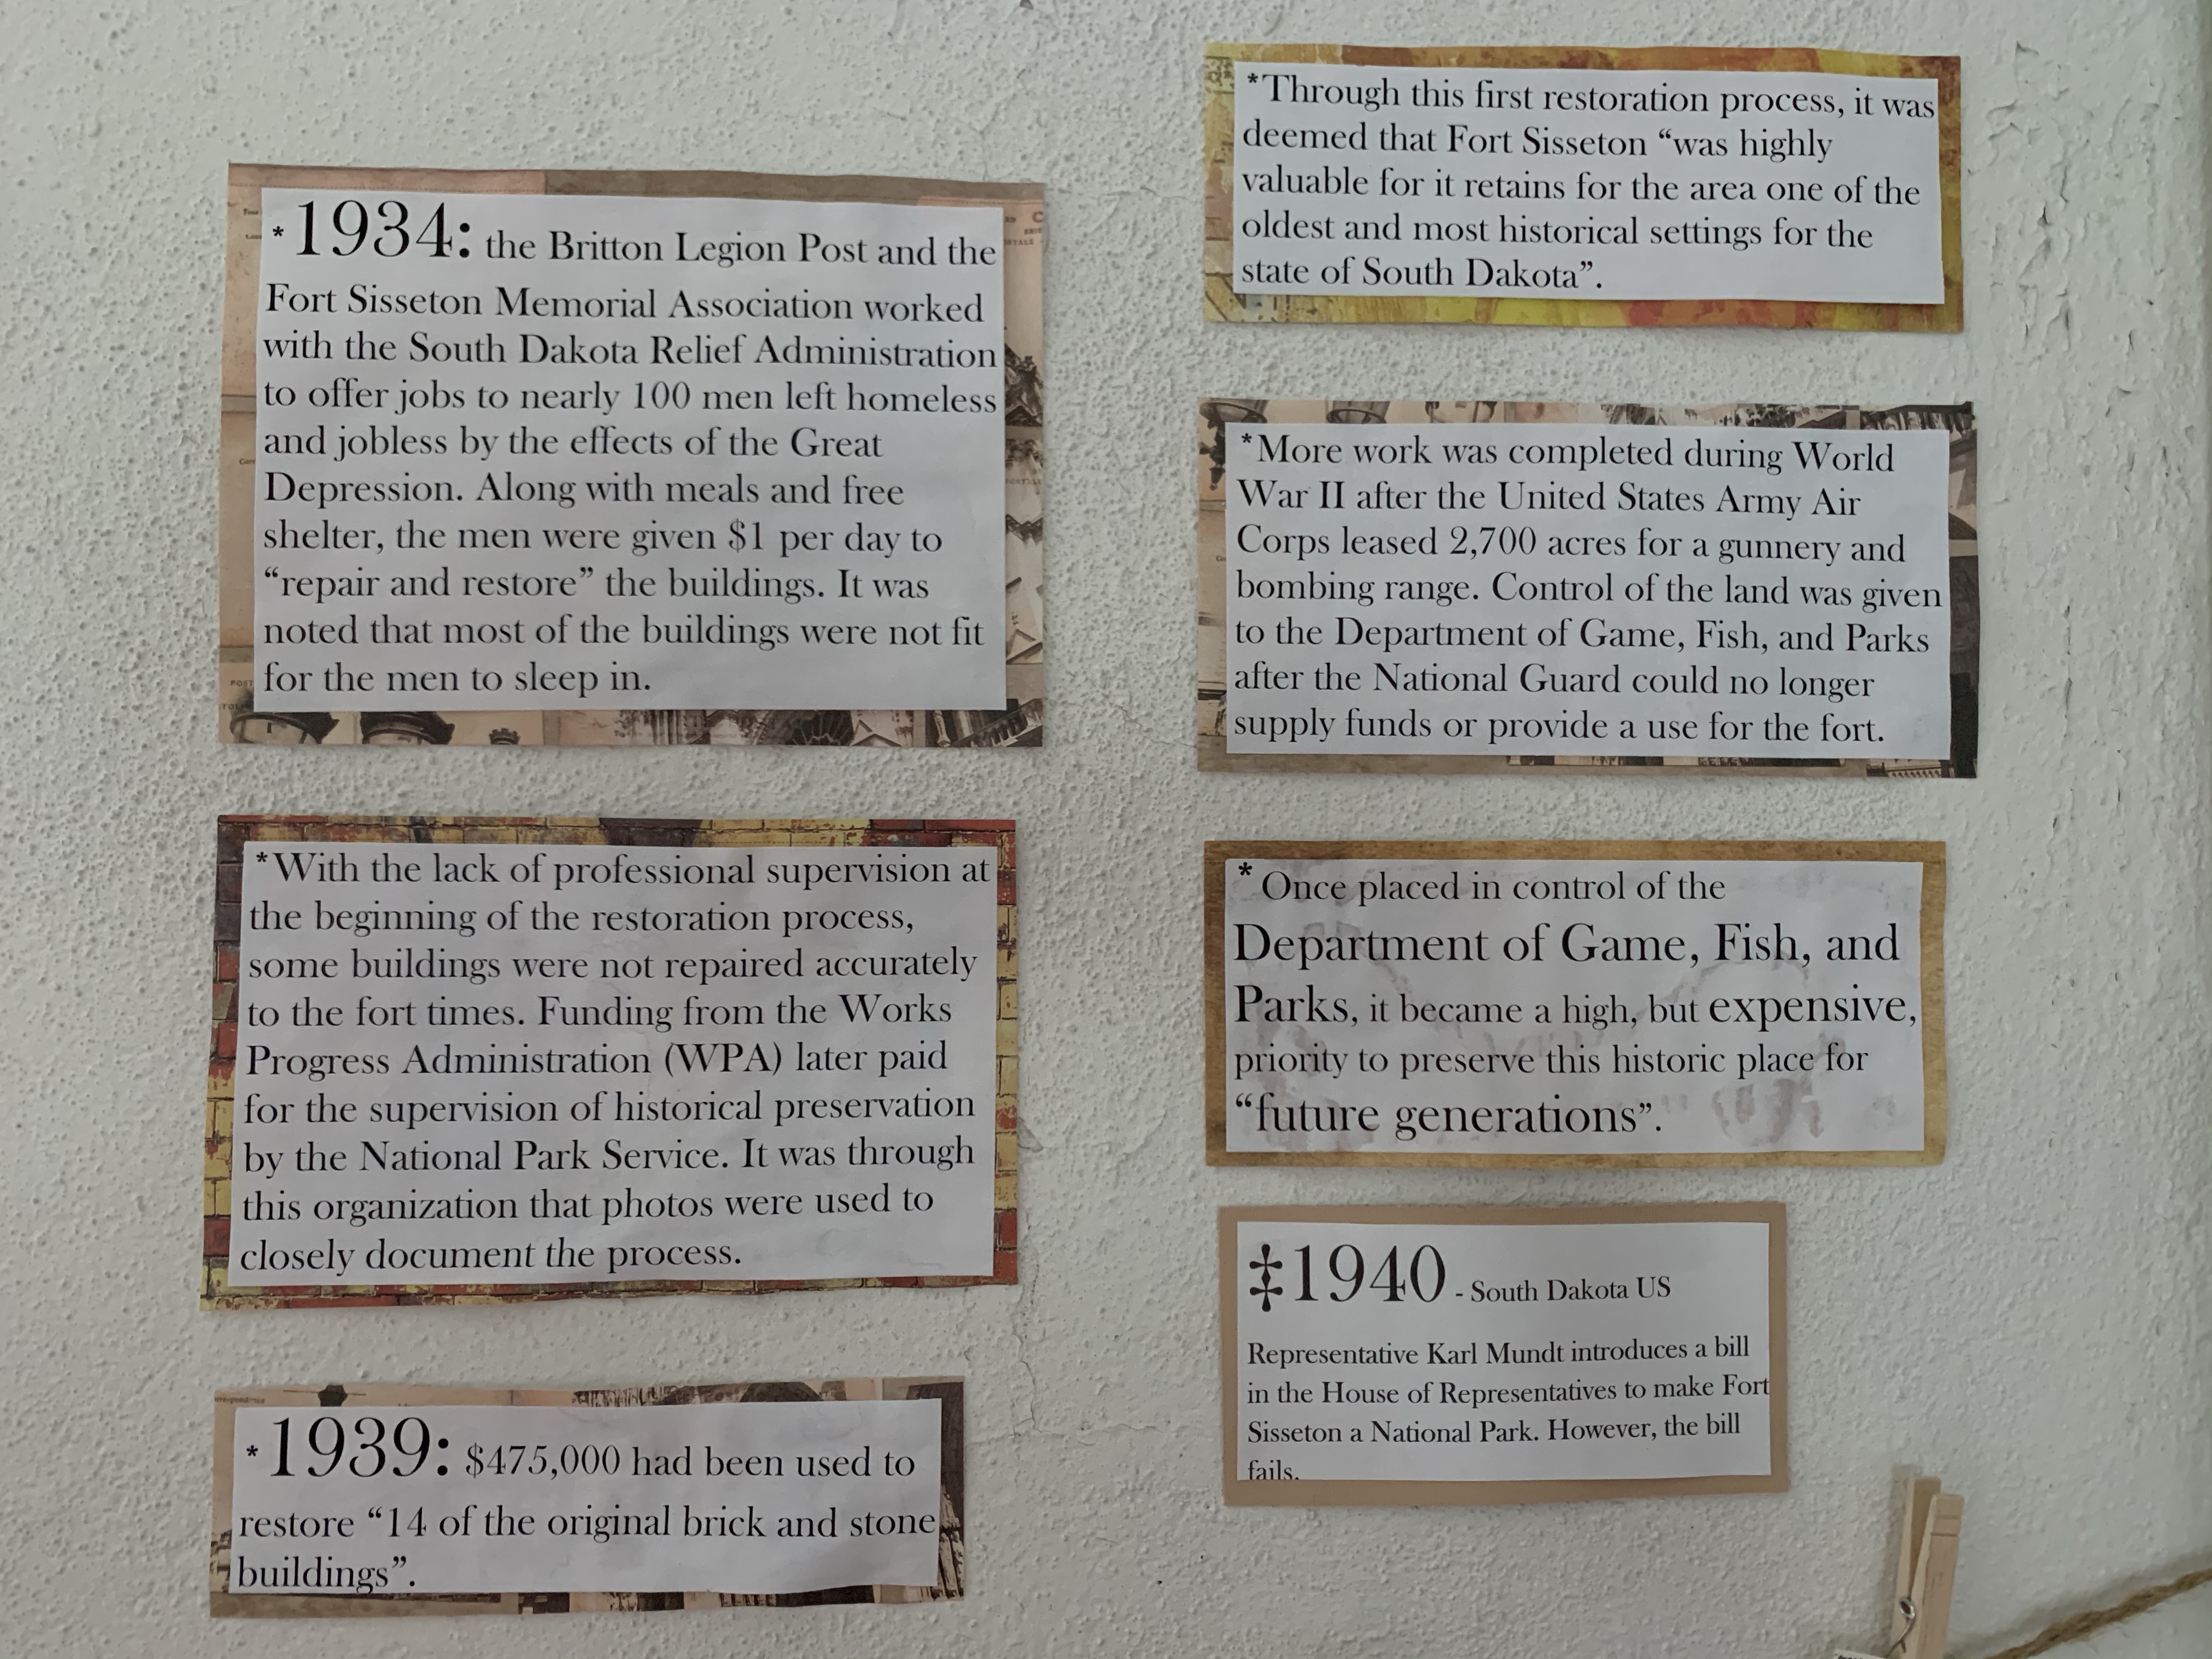 *1934: the Britton Legion Post and the
Fort Sisseton Memorial Association worked
with the South Dakota Relief Administration
to offer jobs to nearly 100 men left homeless
and jobless by the effects of the Great
Depression. Along with meals and free
shelter, the men were given $1 per day to
“repair and restore” the buildings. It was
noted that most of the buildings were not fit
for the men to sleep in.
*With the lack of professional supervision at
the beginning of the restoration process,
some buildings were not repaired accurately
to the fort times. Funding from the Works
Progress Administration (WPA) later paid
for the supervision of historical preservation
by the National Park Service. It was through
this organization that photos were used to
closely document the process.
*1939: $475,000 had been used to
restore “14 of the original brick and stone
buildings”.
*Through this first restoration process, it was
deemed that Fort Sisseton “was highly
valuable for it retains for the area one of the
oldest and most historical settings for the
state of South Dakota”.
*More work was completed during World
War II after the United States Army Air
Corps leased 2,700 acres for a gunnery and
bombing range. Control of the land was given
to the Department of Game, Fish, and Parks
after the National Guard could no longer
supply funds or provide a use for the fort.
* Once placed in control of the
Department of Game, Fish, and
Parks, it became a high, but expensive,
priority to preserve this historic place for
“future generations”.
‡1940 - South Dakota US
Representative Karl Mundt introduces a bill
in the House of Representatives to make Fort
Sisseton a National Park. However, the bill
fails.